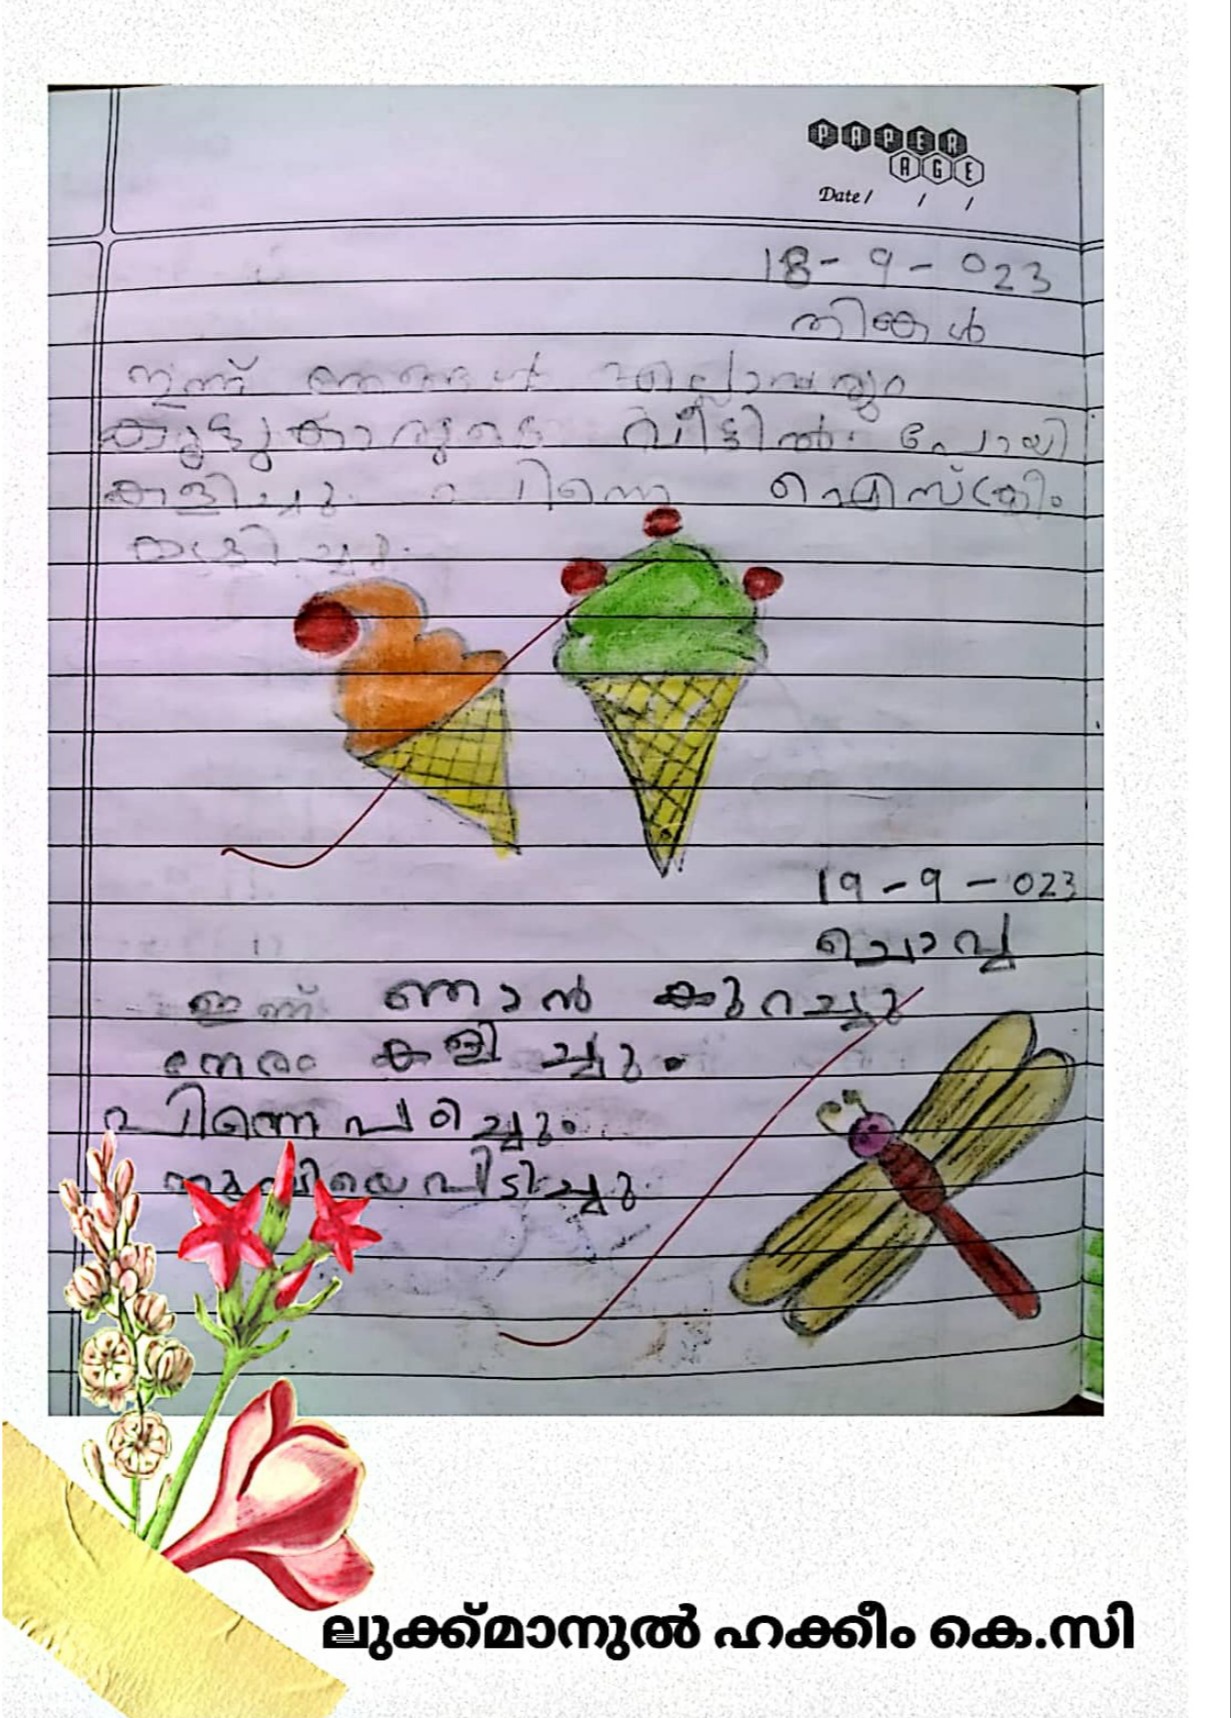 PAPER
AGE
Date / / /
18-9-023
തിങ്കൾ
ഇന്ന് ഞങ്ങൾ എല്ലാവരും
കൂട്ടുകാരുടെ വീട്ടിൽ പോയി
കളിച്ചു. പിന്നെ ഐസ്ക്രീം
കുടിച്ചു.
19-9-023
ചൊവ്വ
ഇന്ന് ഞാൻ കുറച്ചു
നേരം കളിച്ചു.
പിന്നെ പഠിച്ചു.
തുമ്പിയെ പിടിച്ചു
ലുക്ക്മാനുൽ ഹക്കീം കെ.സി